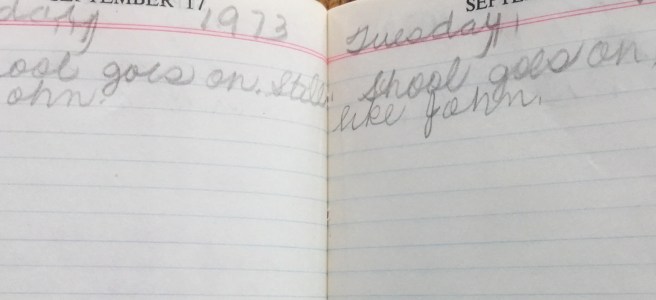 SEPTEMBER 17
day 1973
ool goes on. Still
ohn.
SEPTE
Tuesday,
Shool goes on,
like John.